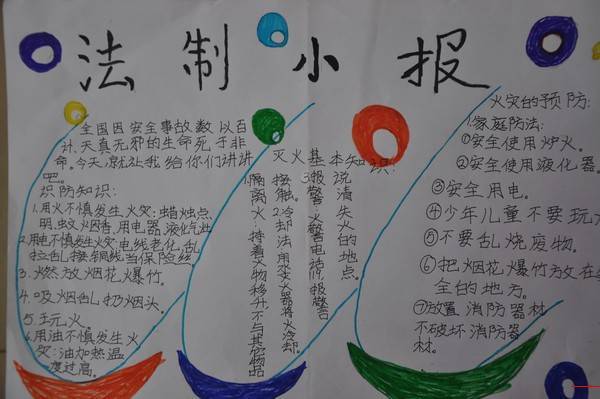 法制小报
全国因安全事故数以百
计.天真无邪的生命死于非
命。今天,就让我给你们讲讲
吧。
识防知识:
1.用火不慎发生火灾:蜡烛点
明,蚊火烟香,用电器,液化气灶
2.用电不慎发生火灾:电线老化,乱
拉乱接铜线当保险丝
3.燃放烟花爆竹。
4.吸烟乱扔烟头。
5.玩火。
6.用油不慎发生火
灾:油加热温
度过高。
灭火基本知识:
1.隔离火持着火物移开,不与其它物品
接触。2.冷却法用灭火器将火冷却.
3.报警火警电话119,报警
说清失火的地点。
火灾的预防:
1.家庭防法:
①安全使用炉火。
②安全使用液化器
③安全用电。
④少年儿童不要玩火
⑤不要乱烧废物。
⑥把烟花爆竹放在
全的地方。
⑦放置消防器材
不破坏消防器
材。